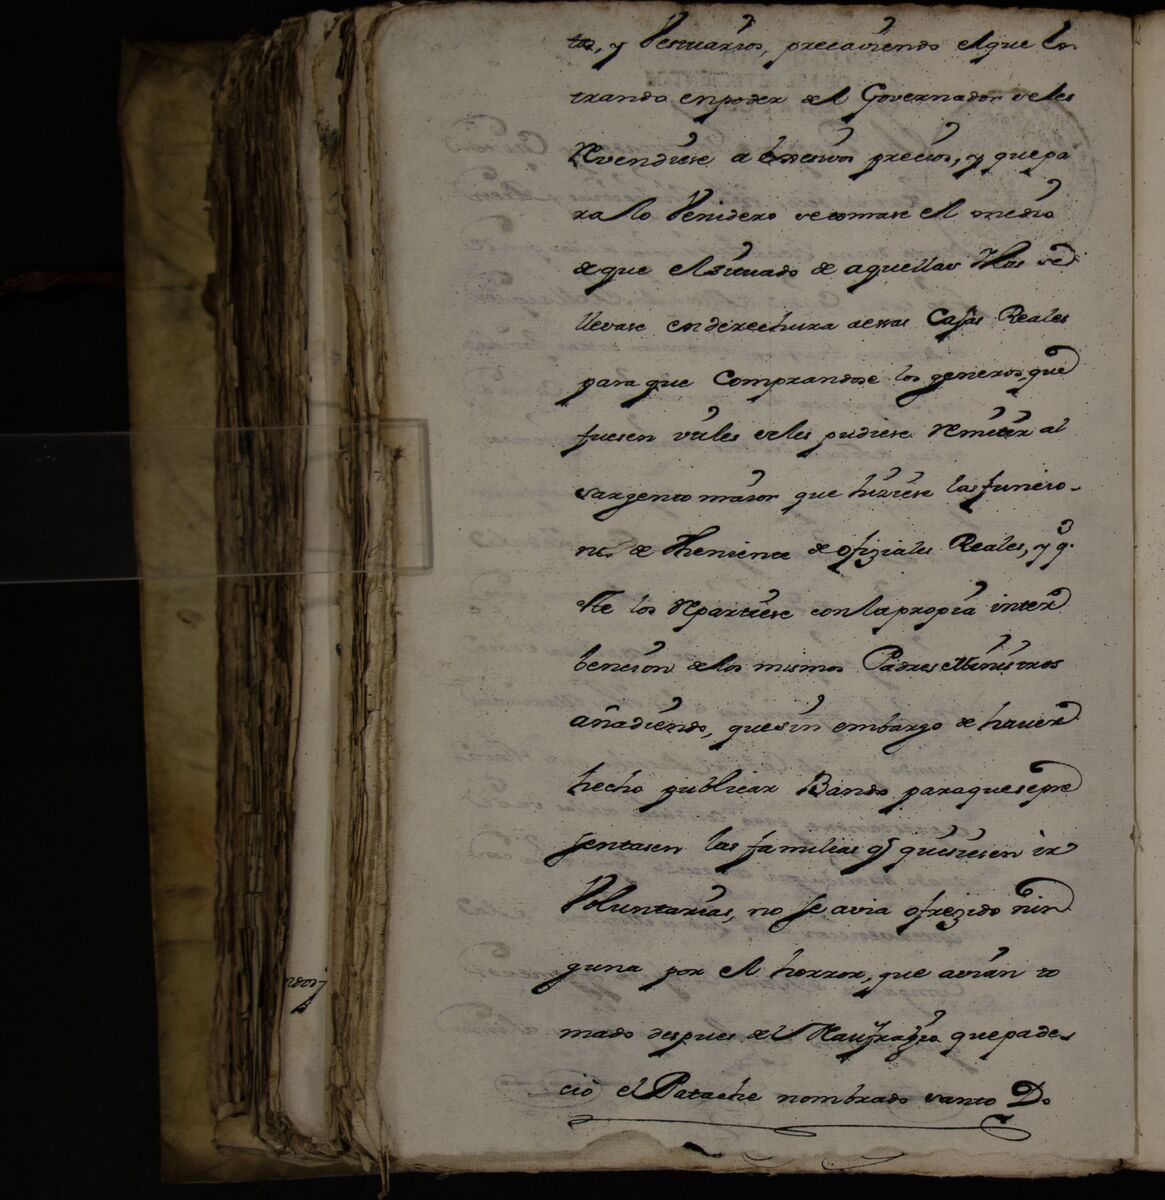 tos, y Vestuarios, precaviendo elque En
trando enpoder del Governador seles
Revendiese a Excesivos precios, y quepa
ralo Venidero setomase el medio
de que elsituado de aquellas Yslas se
llevase enderechura aessas Cajas Reales
para que Comprandose los generos, que
fuesen vtiles seles pudiese Remitir al
sargento maior que hiziese lasfuncio-
nes de Theniente de ofiziales Reales, y q.
este los Repartiese conlapropia inter
bencion delos mismos Padres Ministros
añadiendo, quesin embargo de haver
hecho publicar Bando paraquesepre
sentasen las familias q quisiesen ir
Voluntarias, no se avia ofrezido nin
guna por el horror, que avian to
mado despues del Naufragio quepade
ció el Patache nombrado santo Do